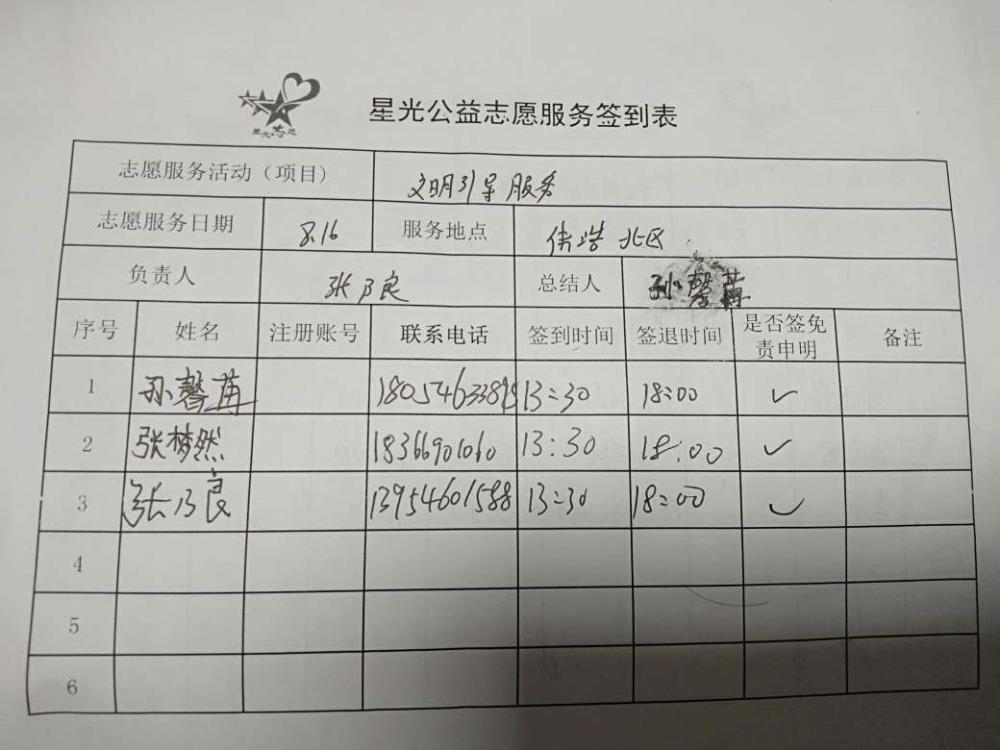 星光志愿
星光公益志愿服务签到表
志愿服务活动（项目） 文明引导服务
志愿服务日期 8.16 服务地点 伟浩北区
负责人 张乃良 总结人 孙馨苒
序号 姓名 注册账号 联系电话 签到时间 签退时间 是否签免责申明 备注
1 孙馨苒 13:30 18:00 ✓
2 张梦然 18366901060 13:30 18:00 ✓
3 张乃良 13954601588 13:30 18:00 ✓
4
5
6